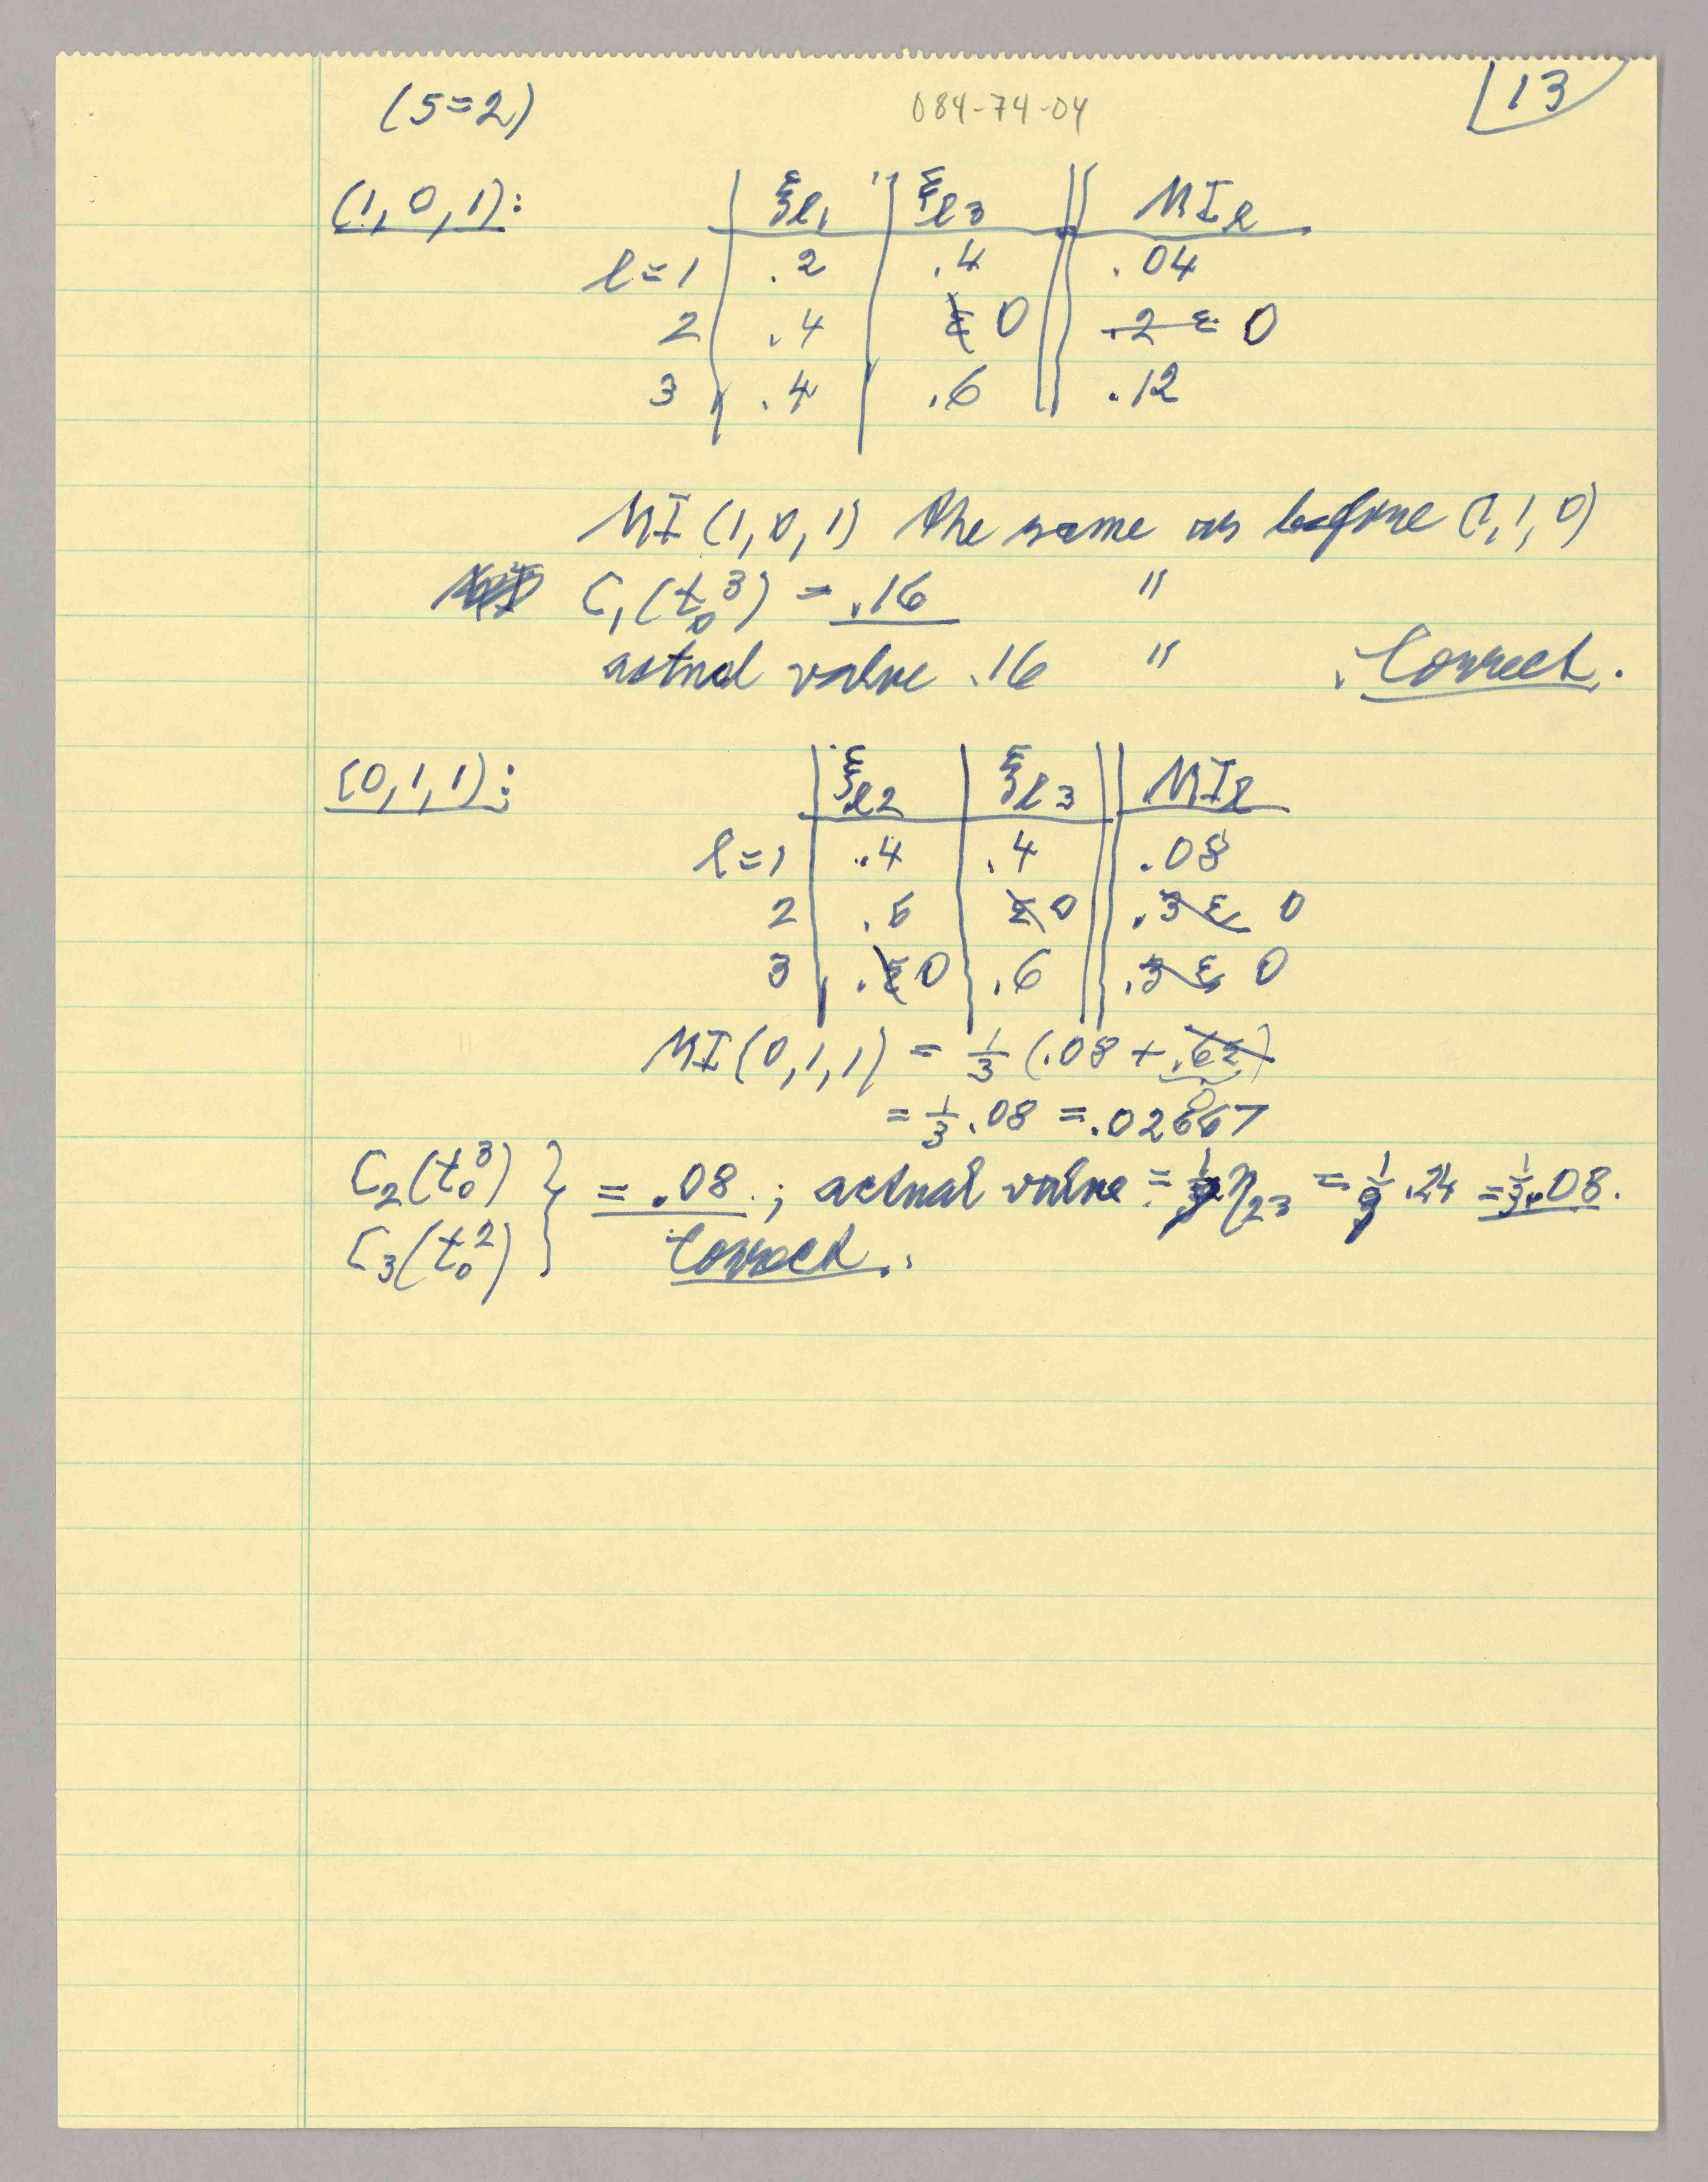 (5=2) 084-74-04 13
(1, 0, 1): ξℓ1 ξℓ3 MIℓ
ℓ=1 .2 .4 .04
2 .4 ε 0 .2 ε 0
3 .4 .6 .12
MI (1, 0, 1) the same as before (1, 1, 0)
C₁(t₀³) = .16 "
actual value .16 " Correct.
(0, 1, 1): ξℓ2 ξℓ3 MIℓ
ℓ=1 .4 .4 .08
2 .6 ε 0 .3 ε 0
3 .ε 0 .6 .3 ε 0
MI(0, 1, 1) = 1/3 (.08 + .6ε)
0
= 1/3 .08 = .02667
C₂(t₀³) } = .08 ; actual value = 1/3 η₂₃ = 1/3 .24 = 1/3 .08.
C₃(t₀²) } Correct.